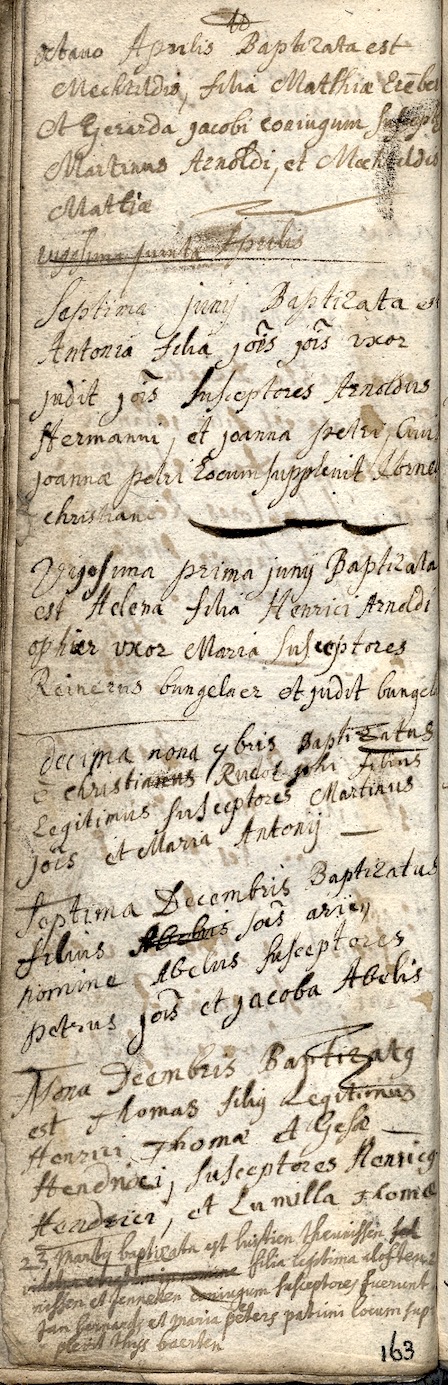 octavo Aprilis Baptizata est
Mechtildis, filia Mathiæ
et Gerarda jacobi coniugum
Martinus Arnoldi, et
Mattiæ
Aprilis
Septima junij Baptizata est
Antonia filia jois jois vxor
judit jois susceptores Arnoldus
Hermanni, et joanna petri,
joannæ petri Locum supplevit
christiani
Vigesima prima junij Baptizata
est Helena filia Henrici Arnoldi
ophier vxor Maria susceptores
Reinerus bungelaer et judit
decima nona 7bris Baptizatus
e christianus Rudolphi filius
Legitimus susceptores Martinus
jois et Maria Antonij
Septima Decembris Baptizatus
filius Abelus Jois
nomine Abelus susceptores
petrus jois et jacoba Abelis
Nona Decembris Baptizatus
est Thomas filius Legitimus
Henrici Thomæ et Gesæ
Hendrici, susceptores Henricus
Hendrici, et Lumilla Thomæ
baptizata est theunissen
filia legitima
nissen et jenneken coniugum susceptores fuerunt
jan et maria peters patrini locum sup
plevit thys baerten
163